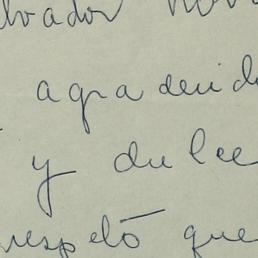 lvador Nov
agradecid
y dulce
respetó que